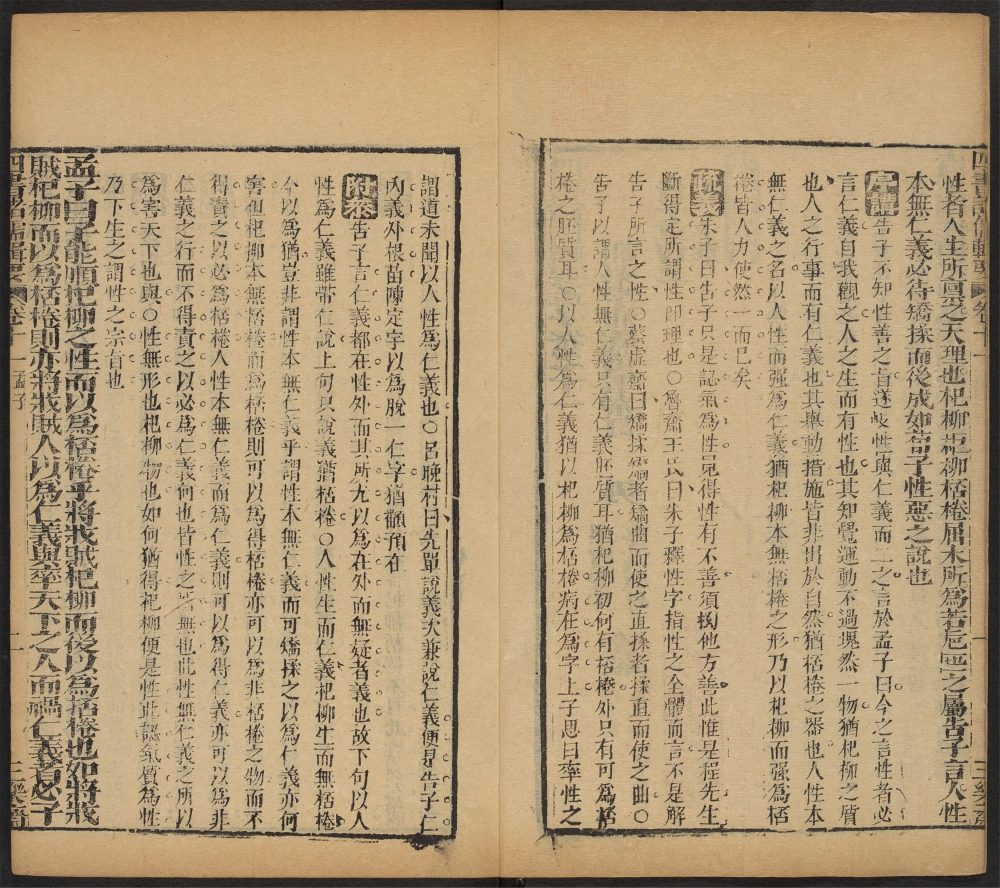 性者人生所稟之天理也杞柳柜柳桮棬屈木所為若卮匜之屬告子言人性
本無仁義必待矯揉而後成如荀子性惡之說也
告子不知性善之旨遂岐性與仁義而二之言於孟子曰今之言性者必
言仁義自我觀之人之生而有性也其知覺運動不過塊然一物猶杞柳之質
也人之行事而有仁義也其舉動措施皆非出於自然猶桮棬之器也人性本
無仁義之名以人性而强為仁義猶杞柳本無桮棬之形乃以杞柳而强為桮
棬皆人力使然一而已矣
朱子曰告子只是認氣為性見得性有不善須拗他方善此惟是程先生
斷得定所謂性即理也○魯齋王氏曰朱子釋性字指性之全體而言不是解
告子所言之性○蔡虛齋曰矯揉矯者矯曲而使之直揉者揉直而使之曲○
告子以謂人性無仁義只有仁義胚質耳猶杞柳初何有桮棬外只有可為桮
棬之胚質耳○以人性為仁義猶以杞柳為桮棬病在為字上子思曰率性之
謂道未聞以人性為仁義也○呂晚村曰先單說義次兼說仁義便是告子仁
內義外根苗陳定宇以為脫一仁字猶顢頇在
附參告子言仁義都在性外而其所尤以為在外而無疑者義也故下句以人
性為仁義雖帶仁說上句只說義猶桮棬○人性生而仁義杞柳生而無桮棬
今以為猶豈非謂性本無仁義乎謂性本無仁義而可矯揉之以為仁義亦何
害但杞柳本無桮棬而為桮棬則可以為得桮棬亦可以為非桮棬之物而不
得責之以必為桮棬人性本無仁義而為仁義則可以為得仁義亦可以為非
仁義之行而不得責之以必為仁義何也皆性之所無也此性無仁義之所以
為害天下也與○性無形也杞柳物也如何猶得杞柳便是性此認氣質為性
乃下生之謂性之宗旨也
孟子曰子能順杞柳之性而以為桮棬乎將戕賊杞柳而後以為桮棬也如將戕
賊杞柳而以為桮棬則亦將戕賊人以為仁義與率天下之人而禍仁義者必子